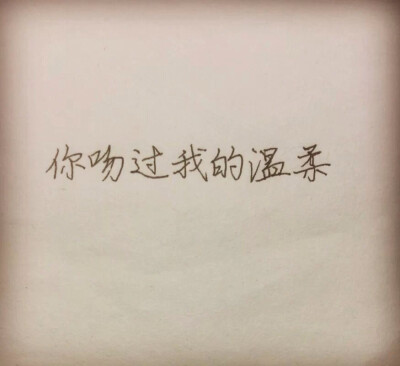 你吻过我的温柔